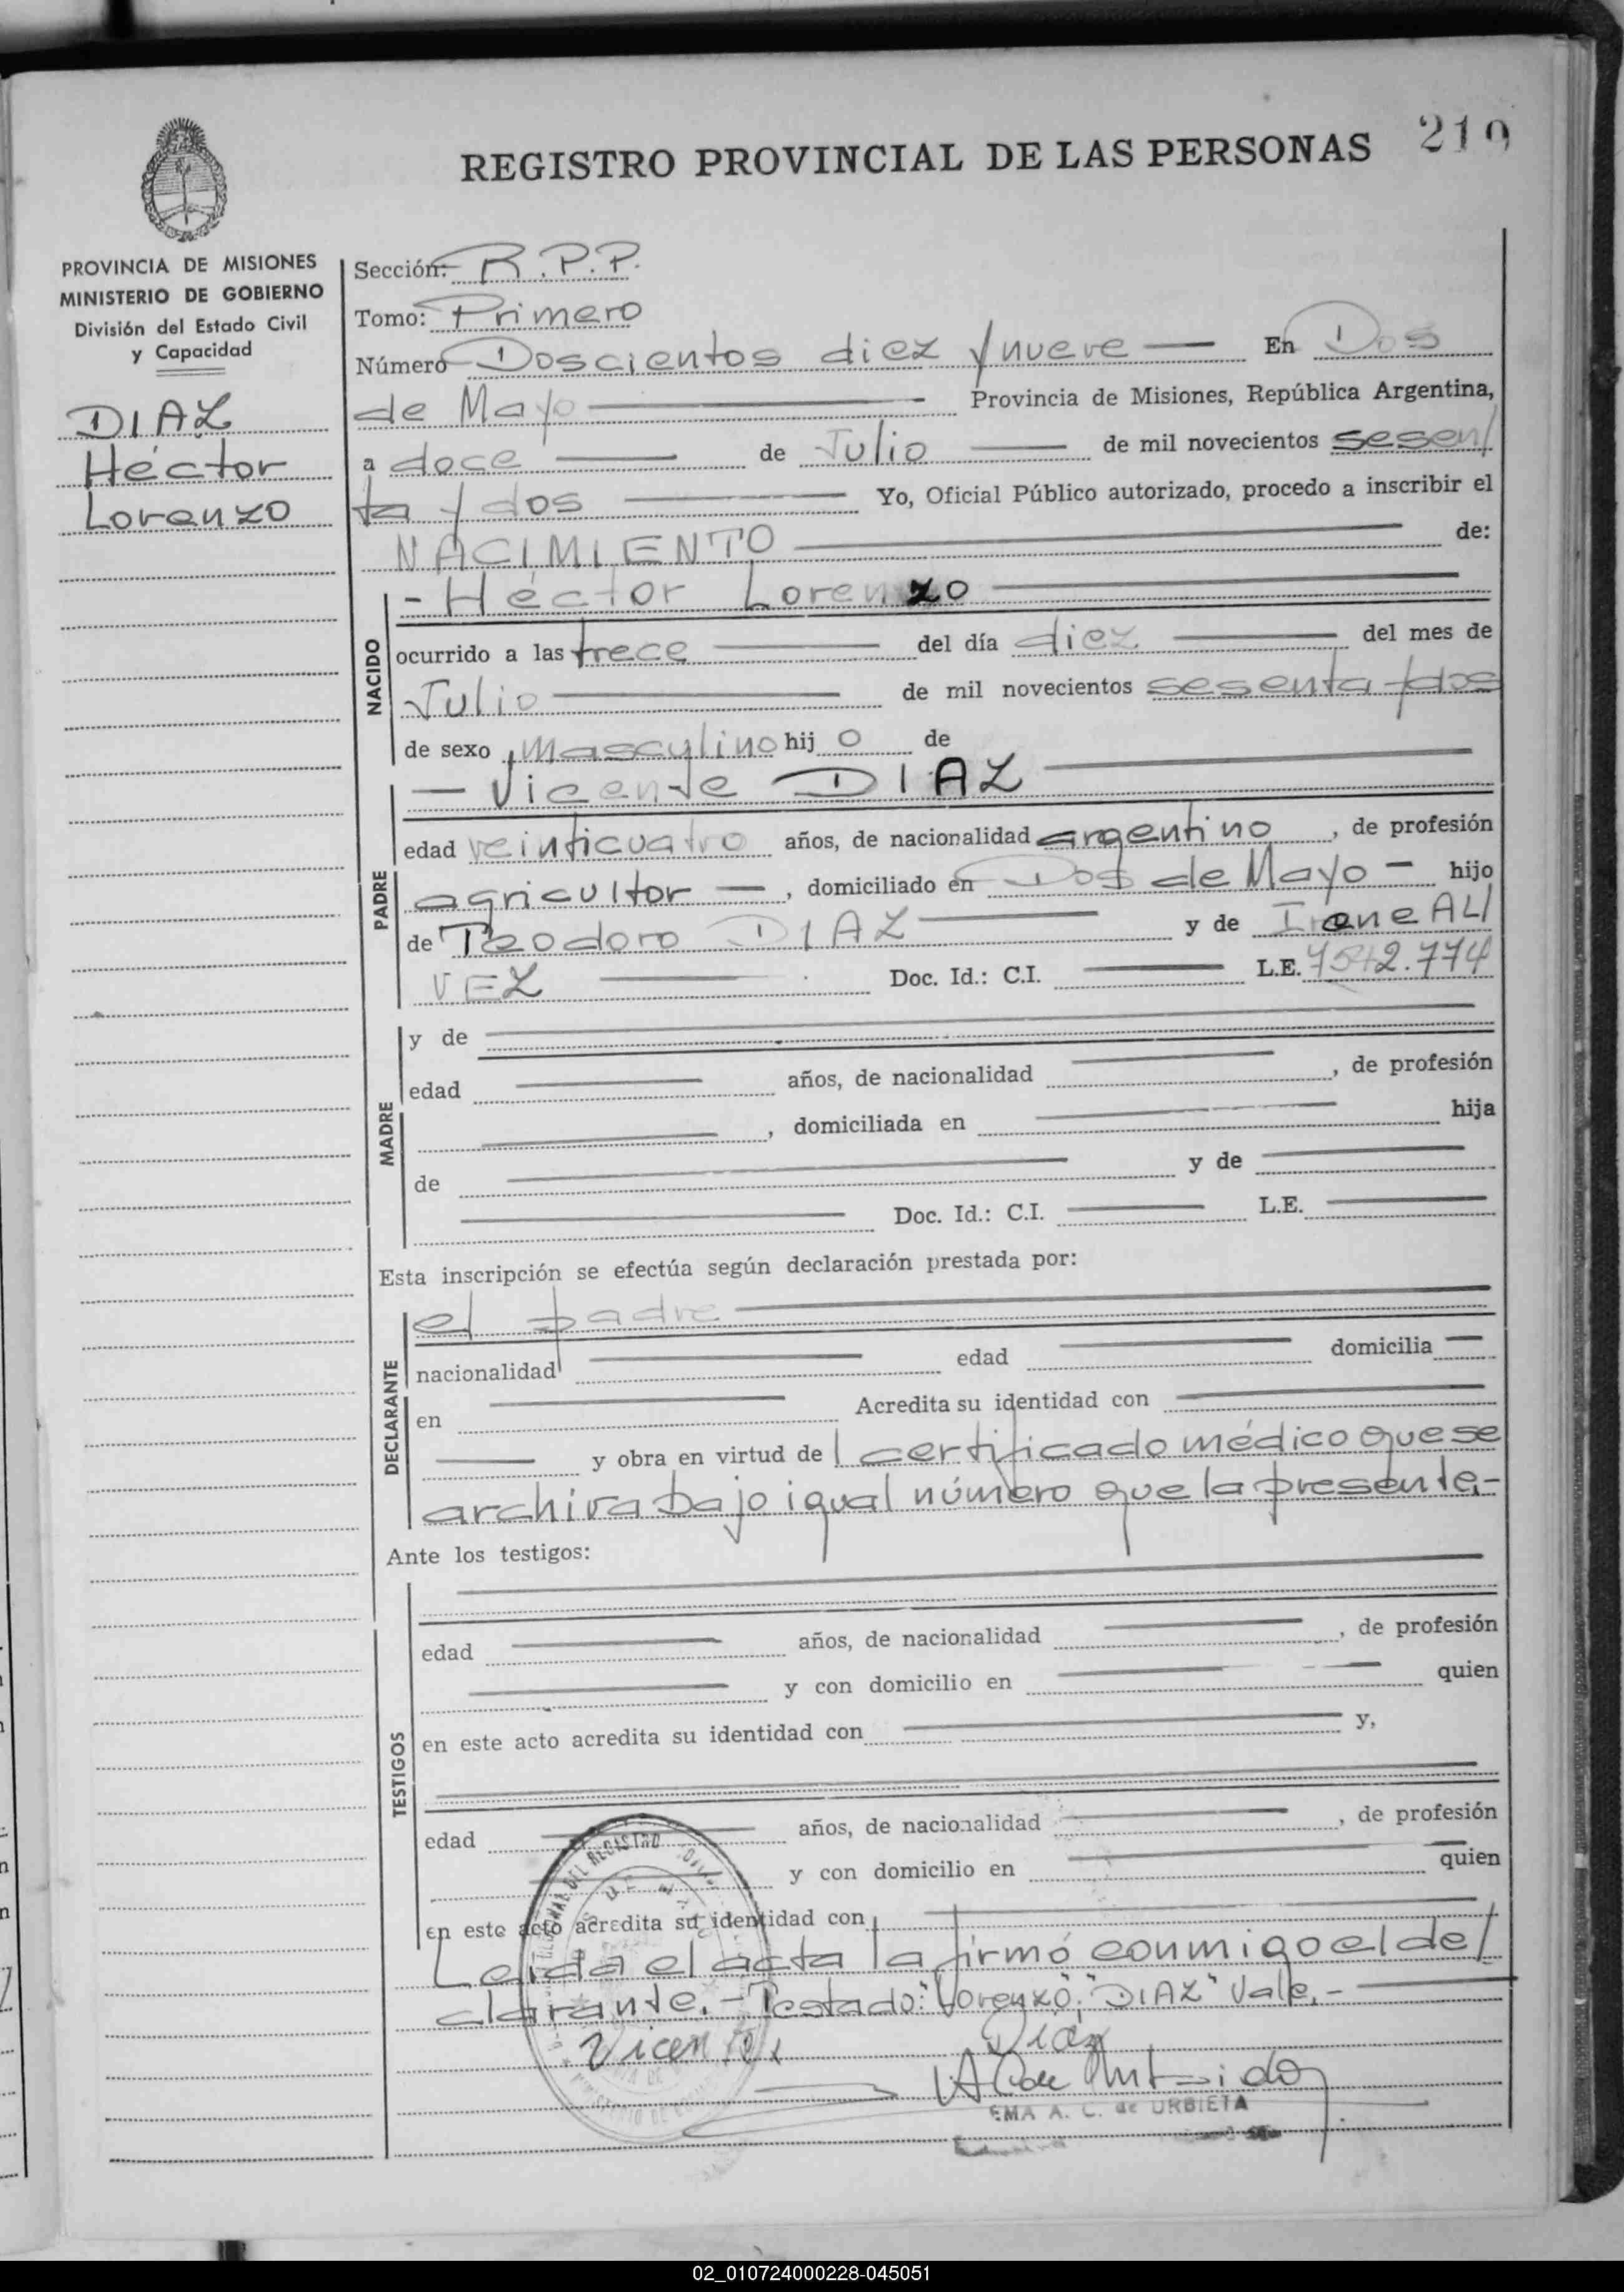 REGISTRO PROVINCIAL DE LAS PERSONAS 219
PROVINCIA DE MISIONES
MINISTERIO DE GOBIERNO
División del Estado Civil
y Capacidad
DIAZ
Héctor
Lorenzo
Sección: R.P.P.
Tomo: Primero
Número Doscientos diez y nueve — En Dos
de Mayo — Provincia de Misiones, República Argentina,
a doce — de Julio — de mil novecientos sesen/
ta y dos — Yo, Oficial Público autorizado, procedo a inscribir el
NACIMIENTO — de:
NACIDO
- Héctor Lorenzo —
ocurrido a las trece — del día diez — del mes de
Julio — de mil novecientos sesenta y dos
de sexo masculino hij o de
PADRE
— Vicente DIAZ —
edad veinticuatro años, de nacionalidad argentino, de profesión
agricultor —, domiciliado en Dos de Mayo — hijo
de Teodoro DIAZ — y de Irene AL/
VEZ — Doc. Id.: C.I. — L.E. 7542.774
MADRE
y de —
edad — años, de nacionalidad —, de profesión
—, domiciliada en — hija
de — y de —
— Doc. Id.: C.I. — L.E. —
Esta inscripción se efectúa según declaración prestada por:
DECLARANTE
el padre —
nacionalidad — edad — domicilia —
en — Acredita su identidad con —
— y obra en virtud de l certificado médico que se
archiva bajo igual número que la presente.-
Ante los testigos:
TESTIGOS
edad — años, de nacionalidad —, de profesión
— y con domicilio en — quien
en este acto acredita su identidad con — y,
edad — años, de nacionalidad —, de profesión
— y con domicilio en — quien
en este acto acredita su identidad con —
Leída el acta la firmó conmigo el de/
clarante.- Testado: "Lorenzo", "DIAZ" Vale.-
Vicente Diaz
EMA A. C. de URBIETA
02_010724000228-045051